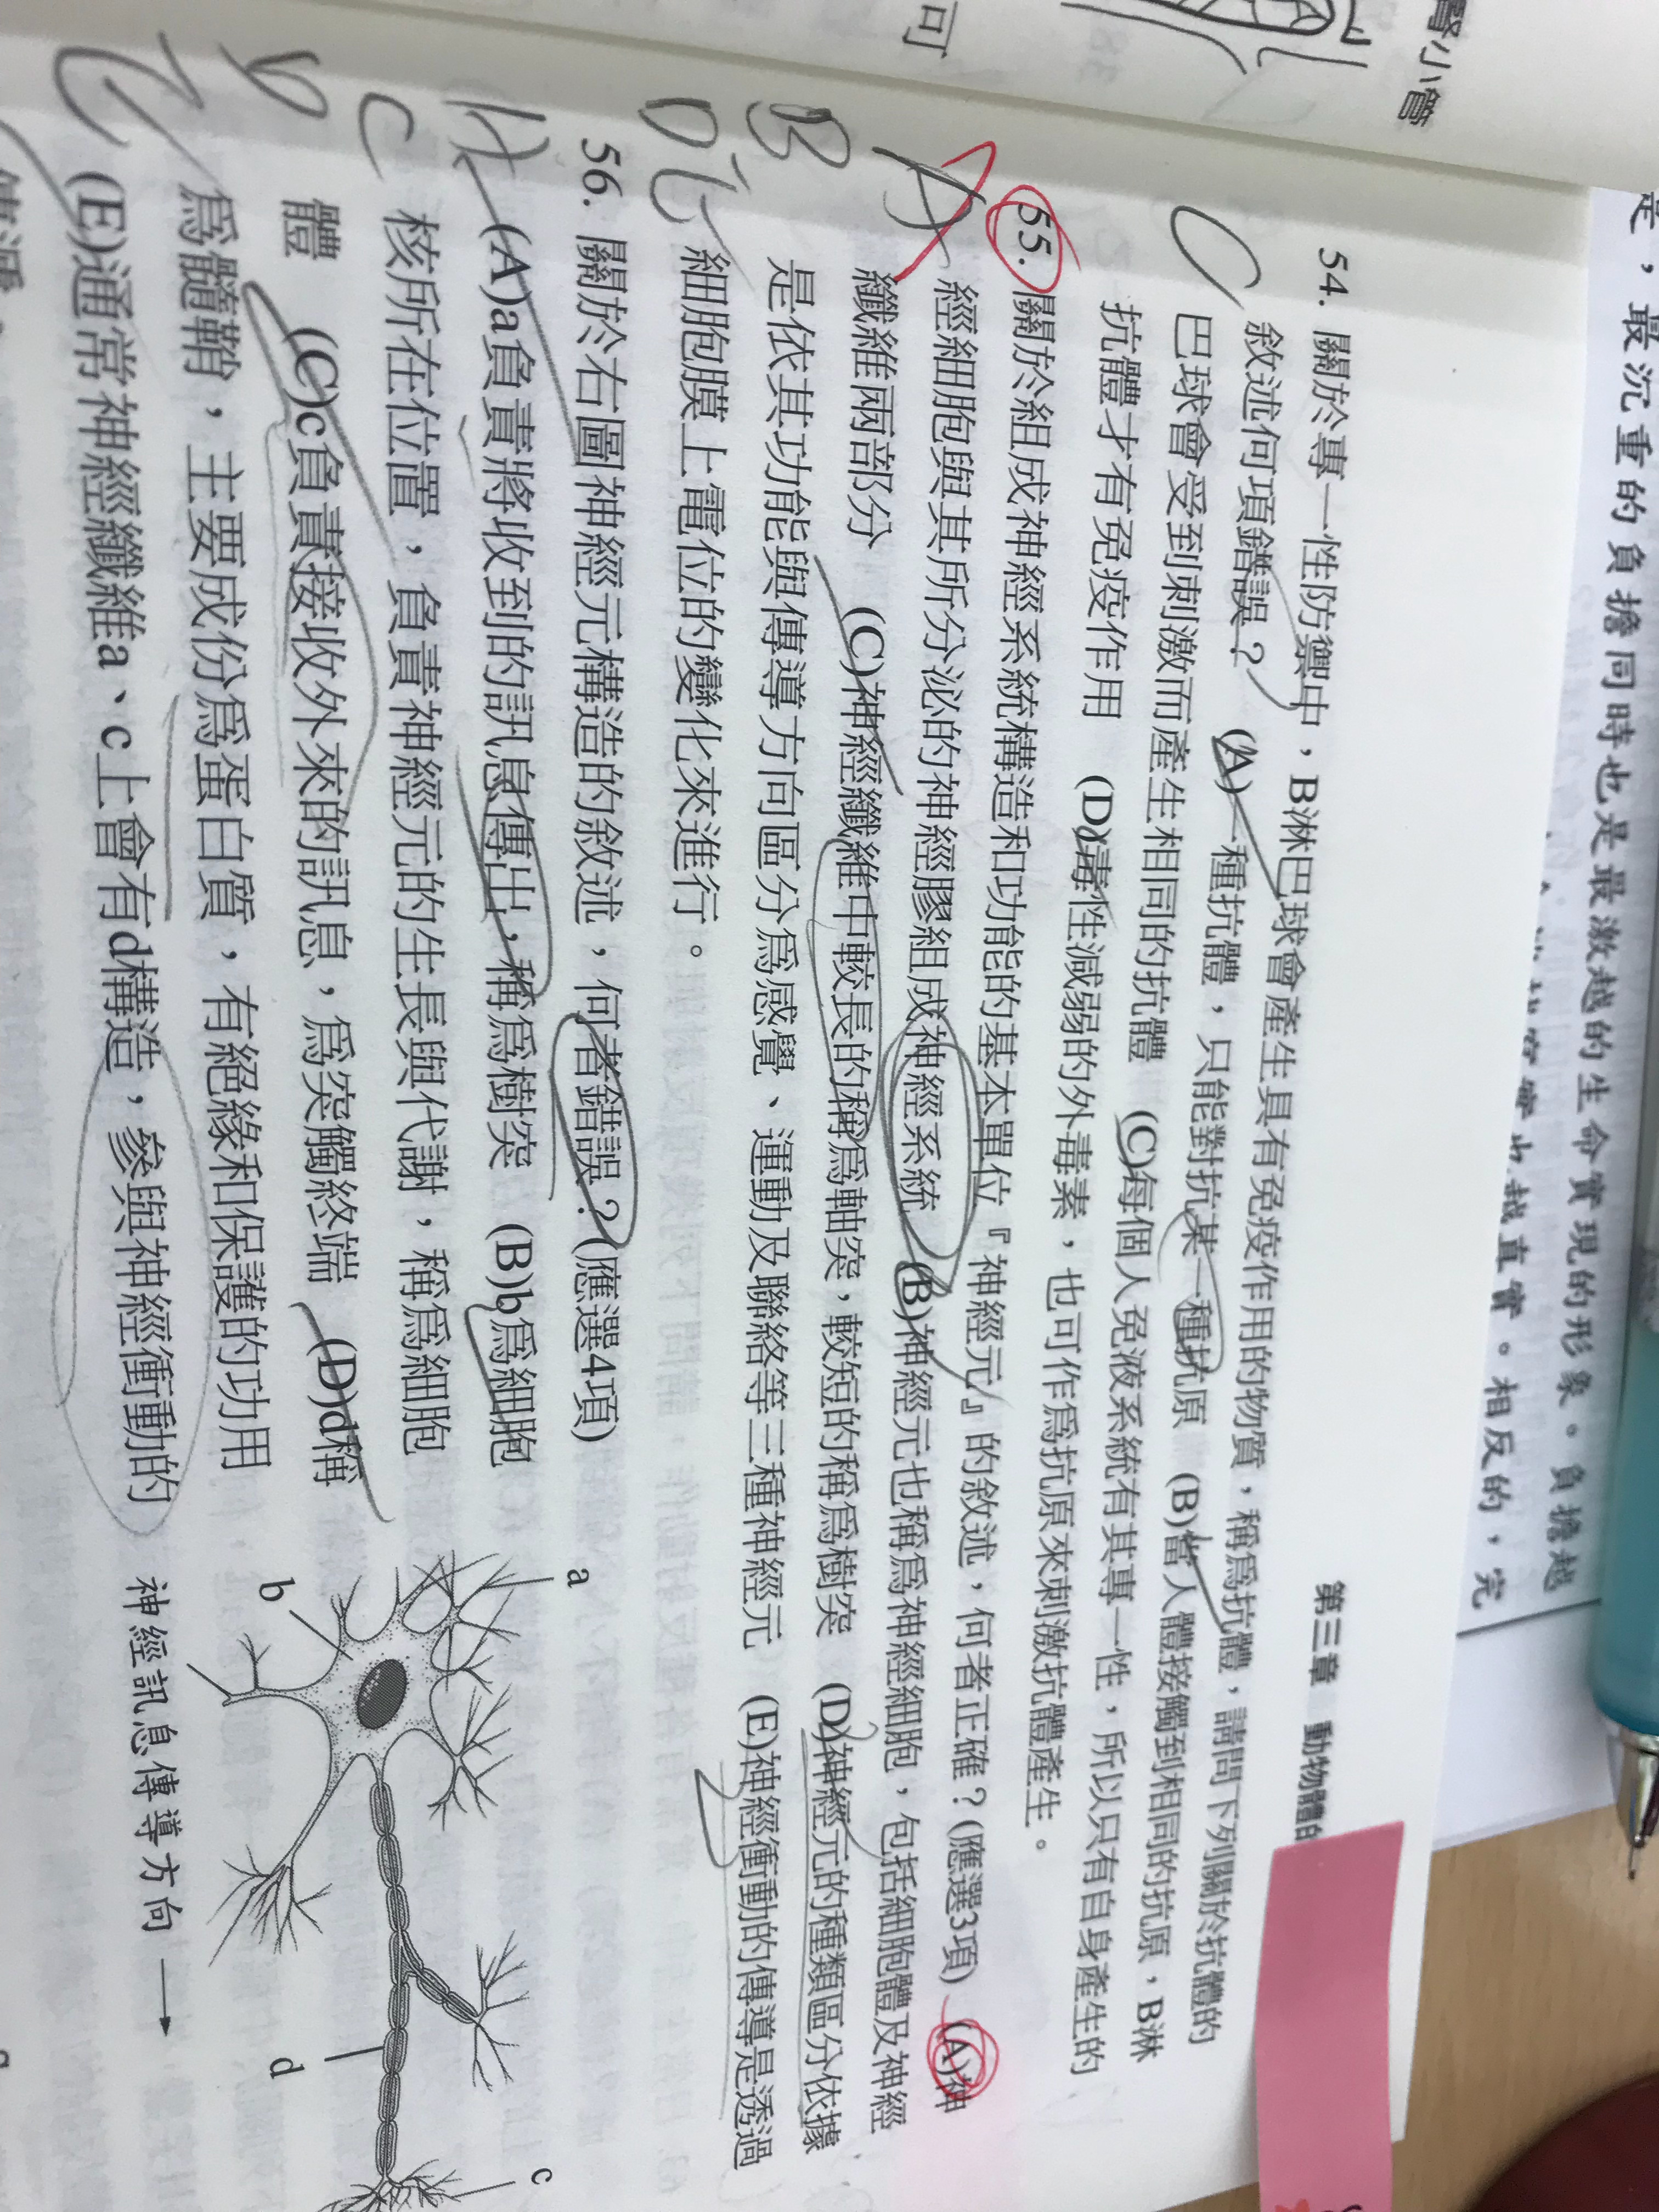 腎小管
可
定，最沉重的負擔同時也是最激越的生命實現的形象。負擔越
直實。相反的，完
第三章 動物體的
54. 關於專一性防禦中，B淋巴球會產生具有免疫作用的物質，稱爲抗體，請問下列關於抗體的
敘述何項錯誤？ (A)一種抗體，只能對抗某一種抗原 (B)當人體接觸到相同的抗原，B淋
巴球會受到刺激而產生相同的抗體 (C)每個人免液系統有其專一性，所以只有自身產生的
抗體才有免疫作用 (D)毒性減弱的外毒素，也可作爲抗原來刺激抗體產生。
C
55. 關於組成神經系統構造和功能的基本單位『神經元』的敘述，何者正確？(應選3項) (A)神
經細胞與其所分泌的神經膠組成神經系統 (B)神經元也稱爲神經細胞，包括細胞體及神經
纖維兩部分 (C)神經纖維中較長的稱爲軸突，較短的稱爲樹突 (D)神經元的種類區分依據
是依其功能與傳導方向區分爲感覺、運動及聯絡等三種神經元 (E)神經衝動的傳導是透過
細胞膜上電位的變化來進行。
A
B
D
56. 關於右圖神經元構造的敘述，何者錯誤？(應選4項)
(A)a負責將收到的訊息傳出，稱爲樹突 (B)b爲細胞
核所在位置，負責神經元的生長與代謝，稱爲細胞
體 (C)c負責接收外來的訊息，爲突觸終端 (D)d稱
爲髓鞘，主要成份爲蛋白質，有絕緣和保護的功用
(E)通常神經纖維a、c上會有d構造，參與神經衝動的
A
C
D
a
b
c
d
神經訊息傳導方向